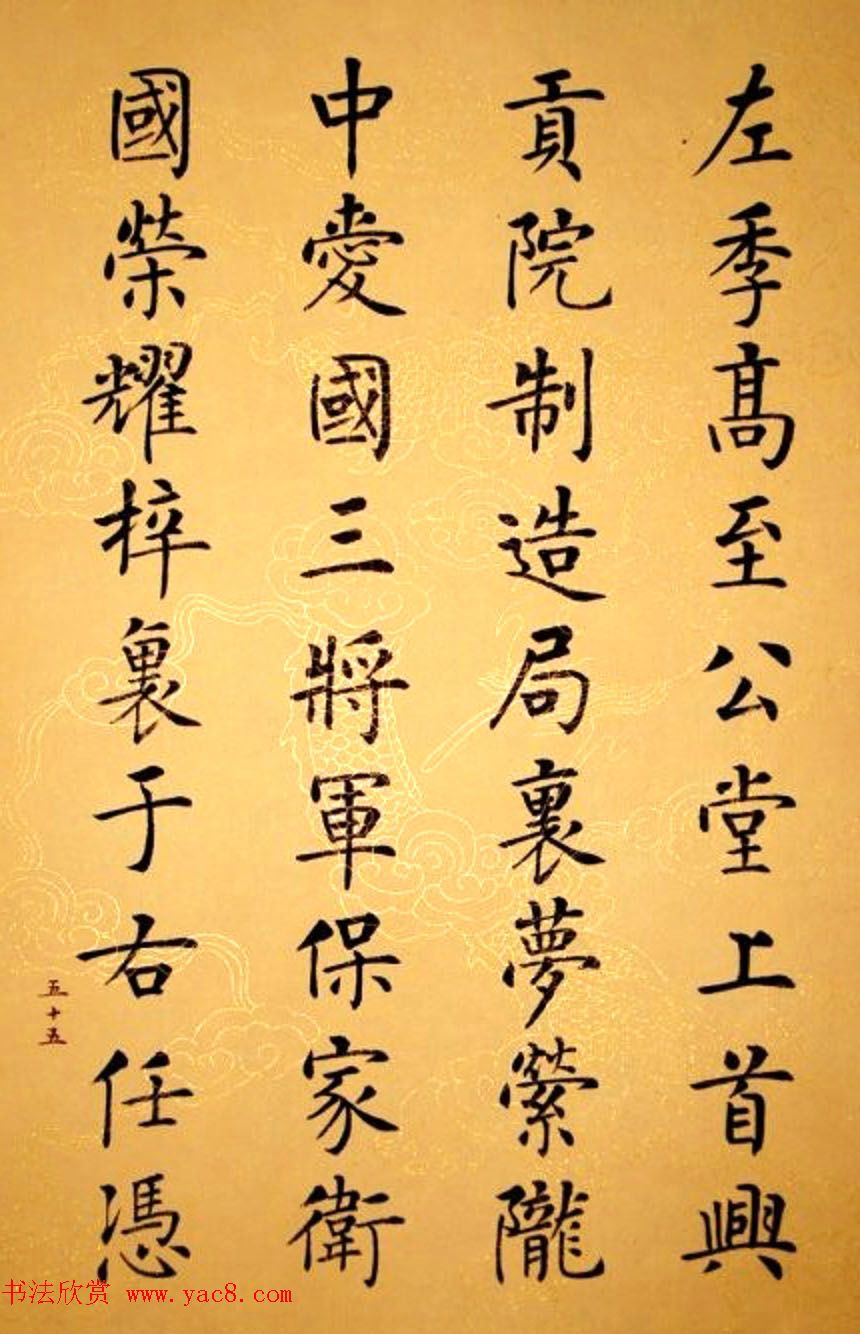 左季高至公堂上首興
貢院制造局裏夢縈隴
中愛國三將軍保家衛
國榮耀梓裏于右任憑
五十五
书法欣赏 www.yac8.com